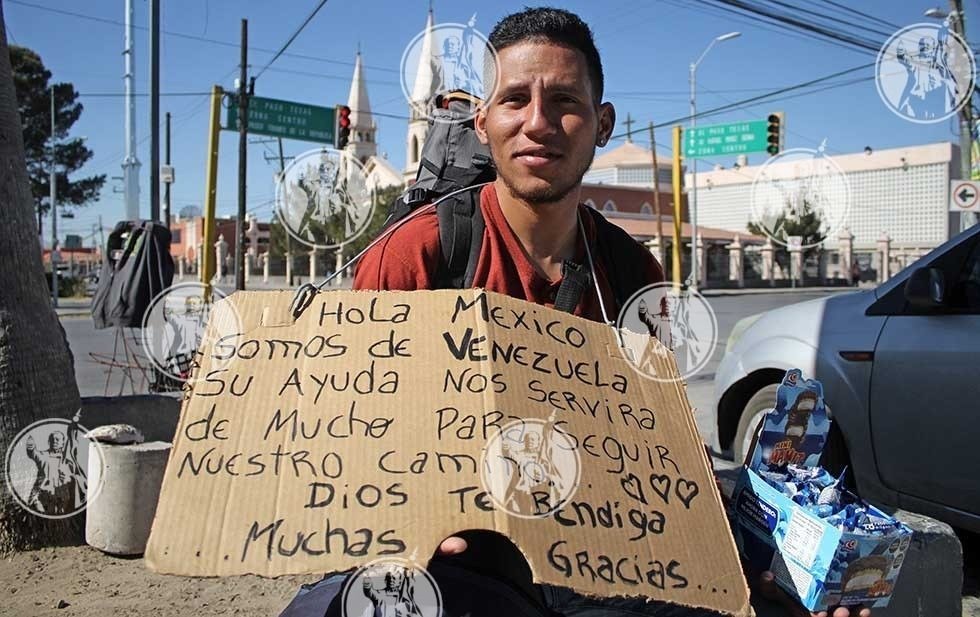 EL PASO TEXAS
ZONA CENTRO
EL PASO TEXAS
ZONA CENTRO
Hola Mexico
Somos de Venezuela
Su Ayuda Nos Servira
de Mucho Para Seguir
Nuestro Camino
Dios Te Bendiga
....Muchas Gracias..